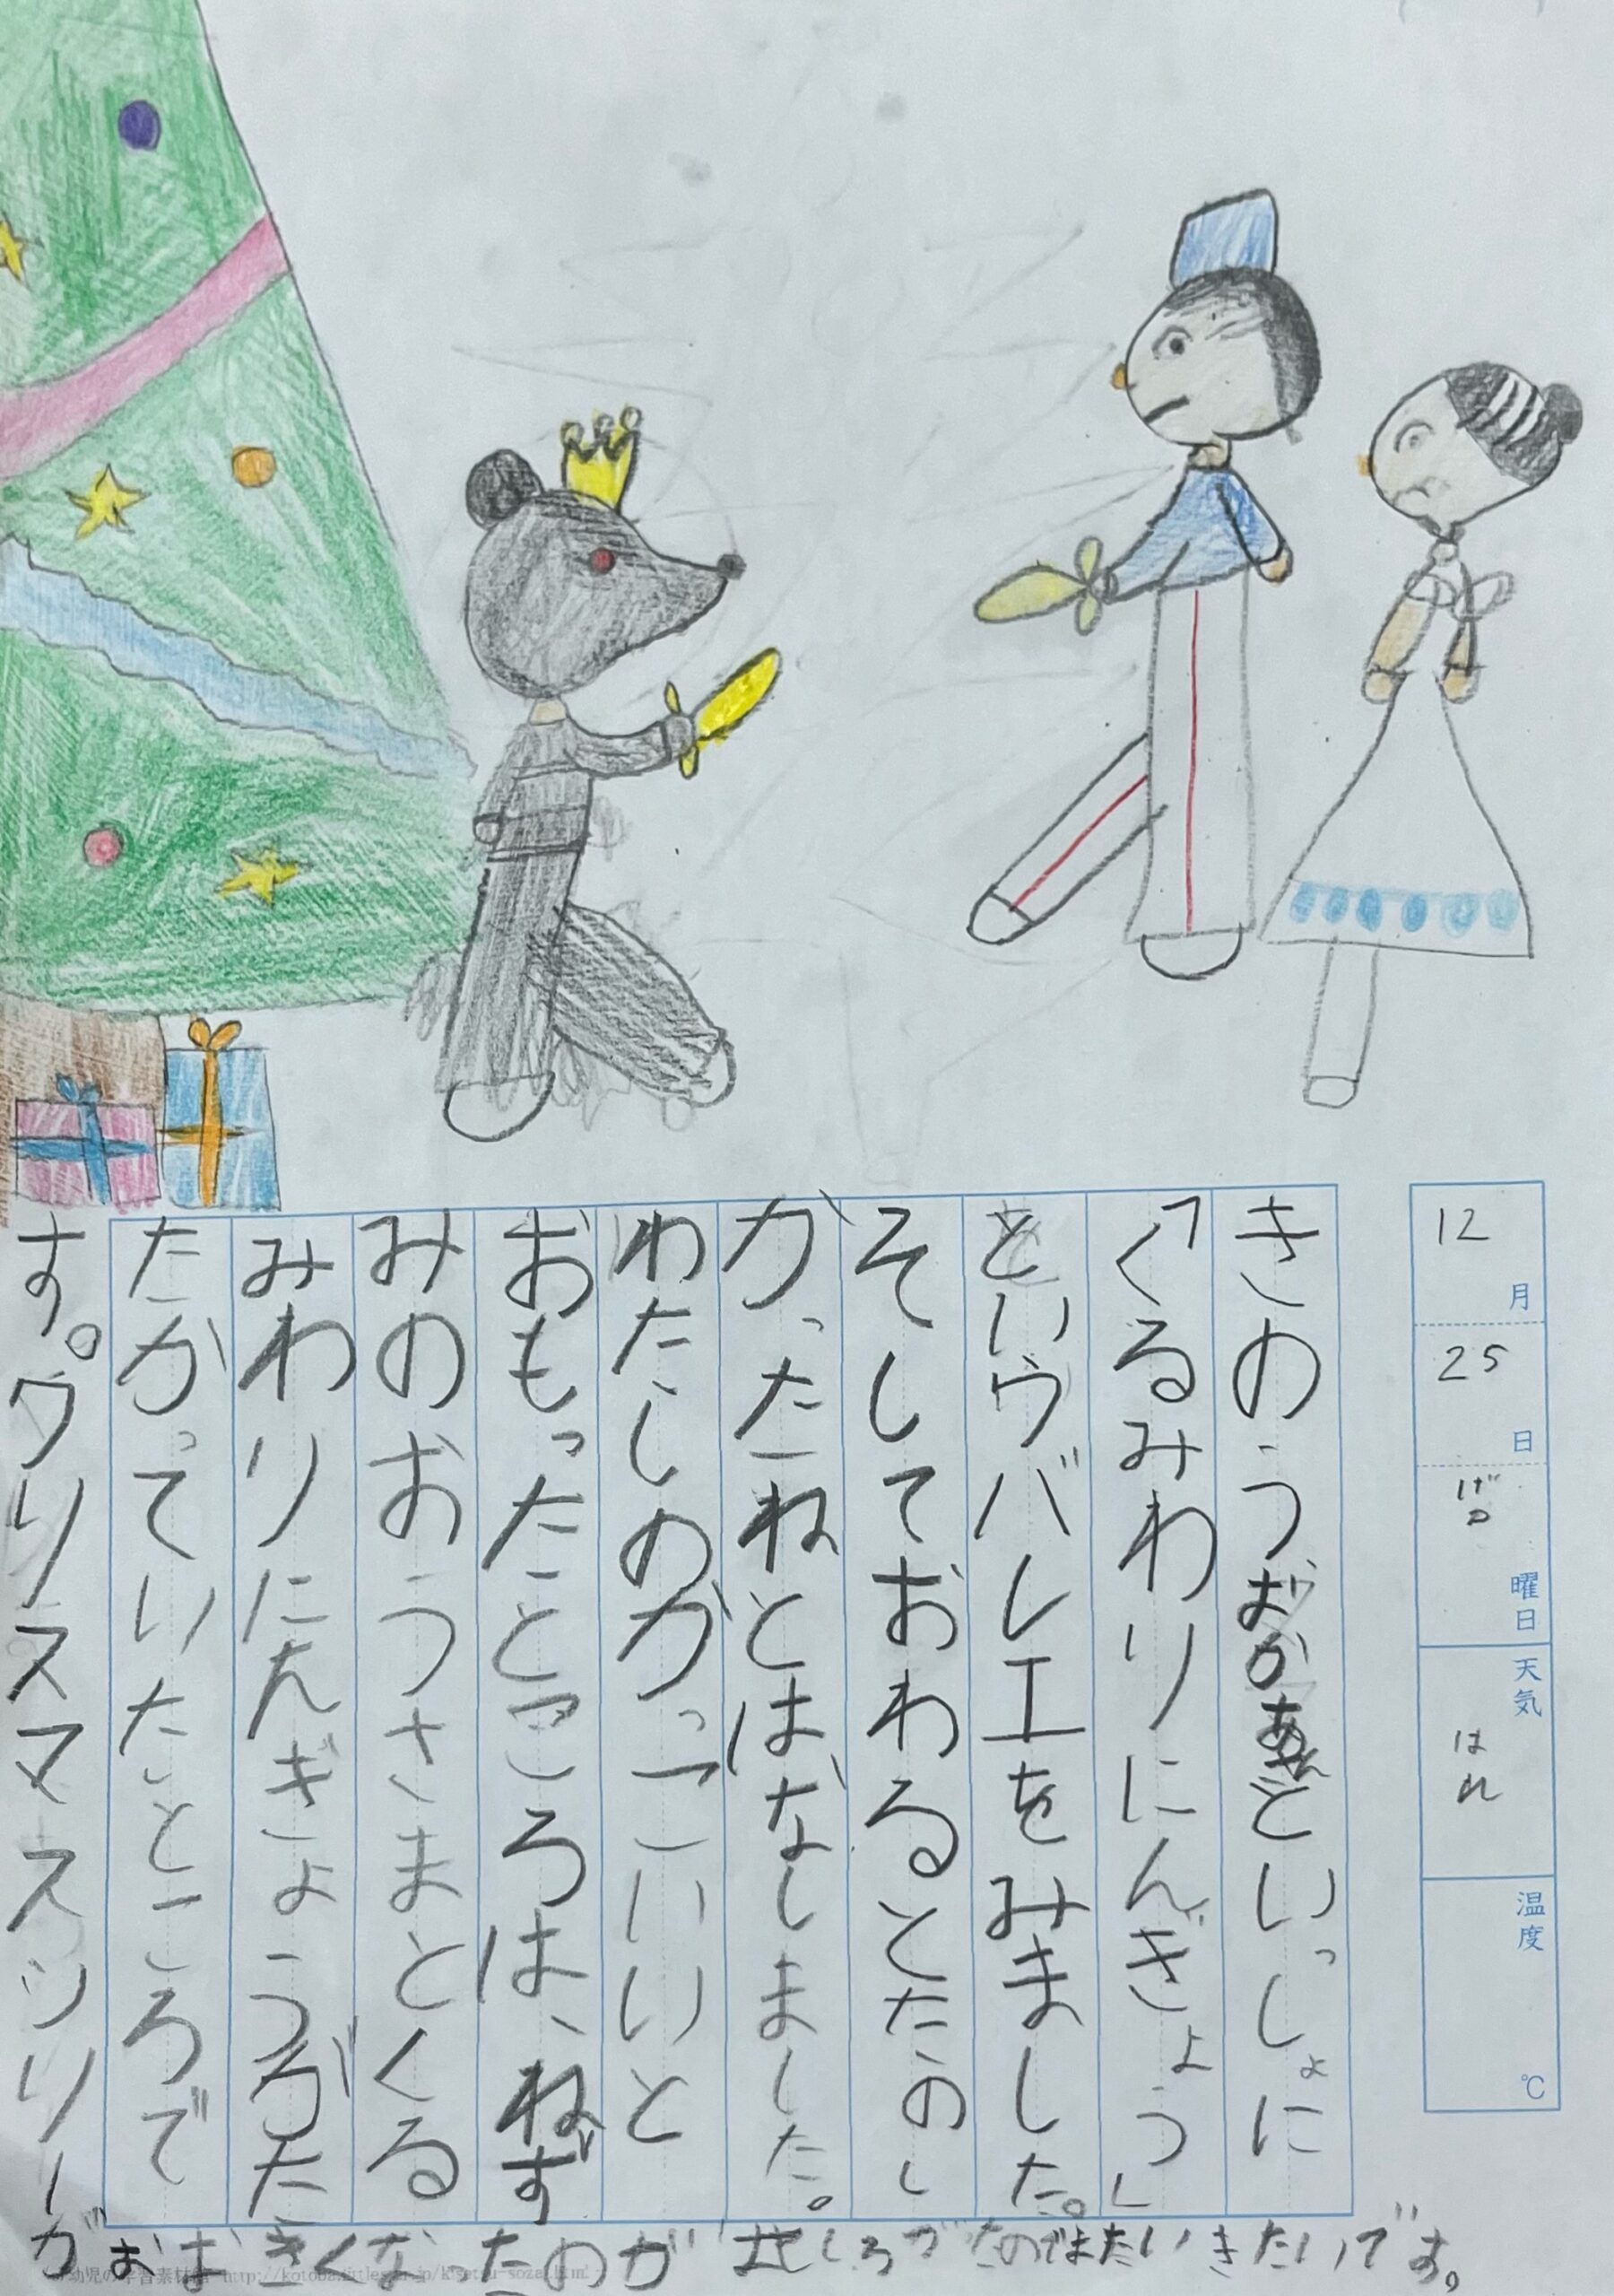 12月
25日
げつ曜日
天気
はれ
温度
℃
きのうおかあさんといっしょに
「くるみわりにんぎょう」
というバレエをみました。
そしておわるとたのし
かったねとはなしました。
わたしのかっこいいと
おもったところは、ねず
みのおうさまとくる
みわりにんぎょうがた
たかっていたところで
す。クリスマスツリー
がおおきくなったのが
しろかったのでまたいきたいです。